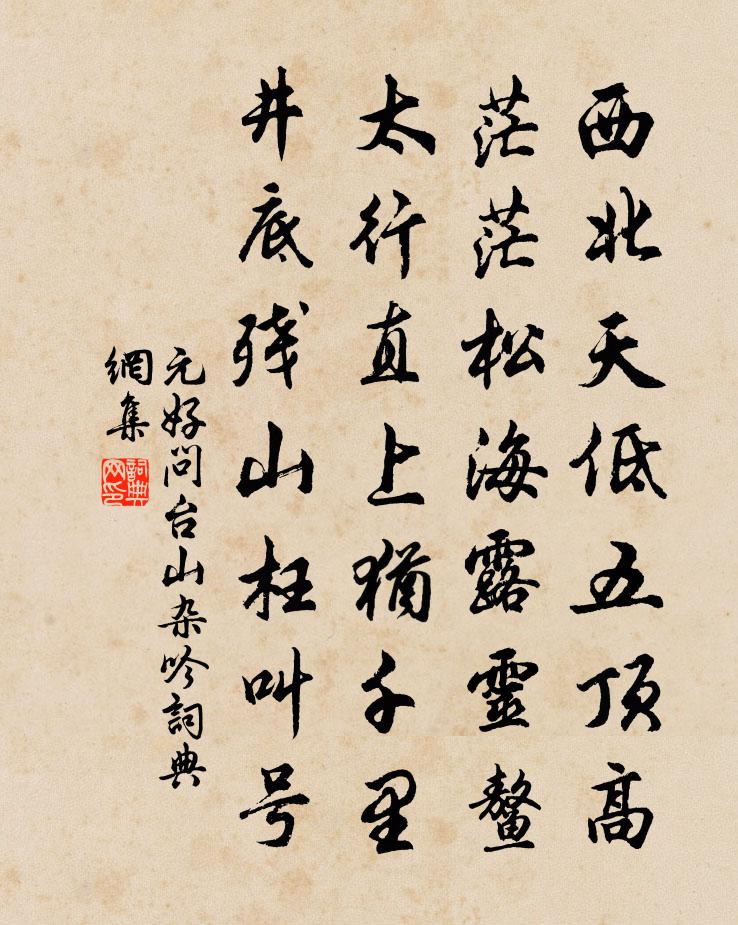 西北天低五顶高
茫茫松海露靈鳌
太行直上猶千里
井底残山枉叫号
元好问台山杂吟詞典
網集
詞典
网印